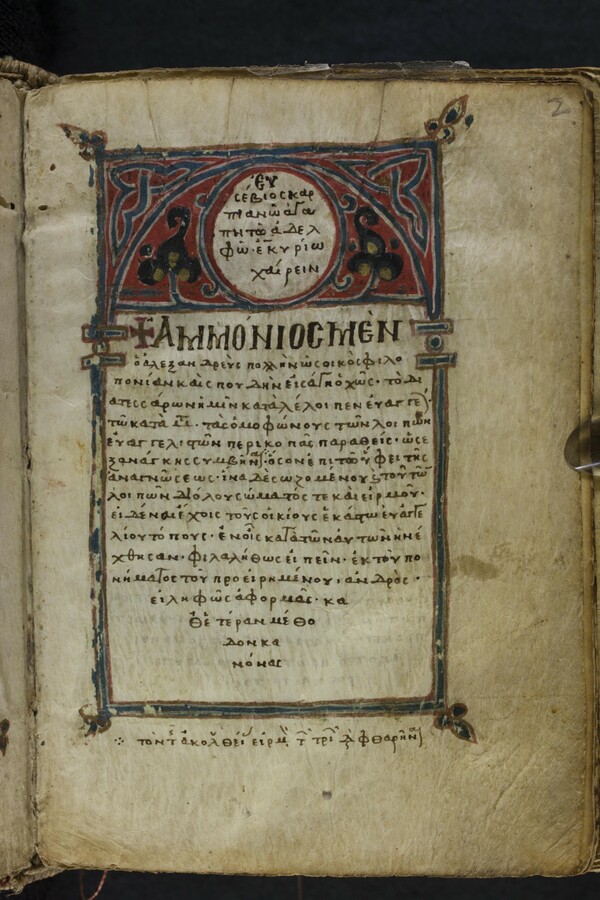 2
Εὐ
σέβιος καρ
πιανῶ ἀγα
πητῶ ἀδελ
φῶ· ἐν κυρίω
χαίρειν
Ἀμμόνιος μὲν
ὁ ἀλεξανδρεὺς πολλὴν ὡς οἰκὸς φιλο
πονίαν καὶ σπουδὴν εἰσαγηοχὼς· τὸ δι
ατεσσάρων ἡμῖν καταλέλοιπεν εὐαγγέ
τῶ κατα · τὰς ὁμοφώνους τῶν λοιπῶν
εὐαγγελιστῶν περικοπὰς παραθεὶς· ὡς ἐ
ξανάγκης συμβῆναι· ὅσον ἐπὶ τῶ ὕφει τῆς
ἀναγνώσεως· ἵνα δὲ σωζομένου τοῦ τῶ
λοιπῶν δι ὅλου σώματός τε καὶ εἱρμοῦ·
εἰδέναι ἔχοις τοὺς οἰκίους ἑκάστω εὐαγγε
λίου τόπους· ἐν οἷς κατα τῶν αὐτῶν ἠνέ
χθησαν· φιλαλήθως εἰπεῖν· ἐκ τοῦ πο
νήματος τοῦ προειρημένου· ἀνδρὸς·
εἰληφὼς ἀφορμὰς· κα
θ ἑτέραν μέθο
δον κα
νόνας
τὸν τ ἀκολθει εἱρμ τ τρι διαφθαρῆναι